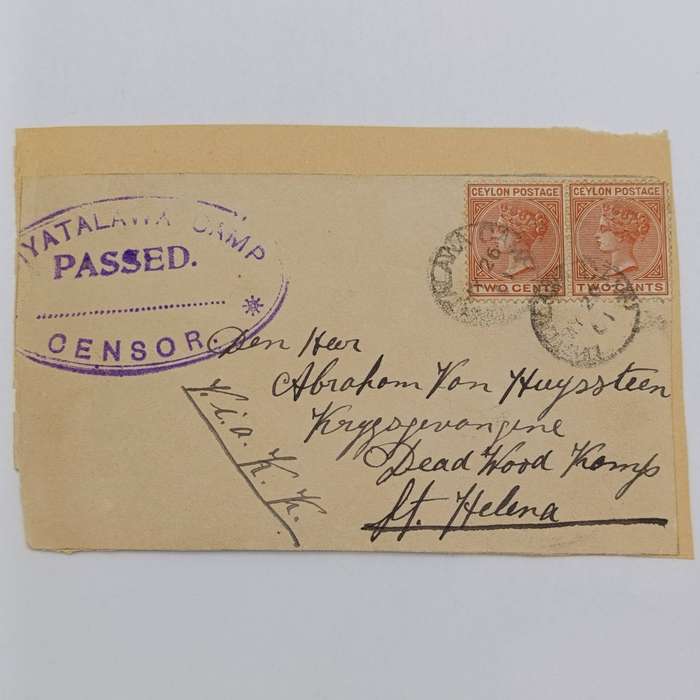 CEYLON POSTAGE
TWO CENTS
CEYLON POSTAGE
TWO CENTS
IYATALAWA CAMP
PASSED.
CENSOR.
Den Heer
Abraham Van Huyssteen
Krygsgevangene
Dead Wood Kamp
St. Helena
V.i.a. K. K.